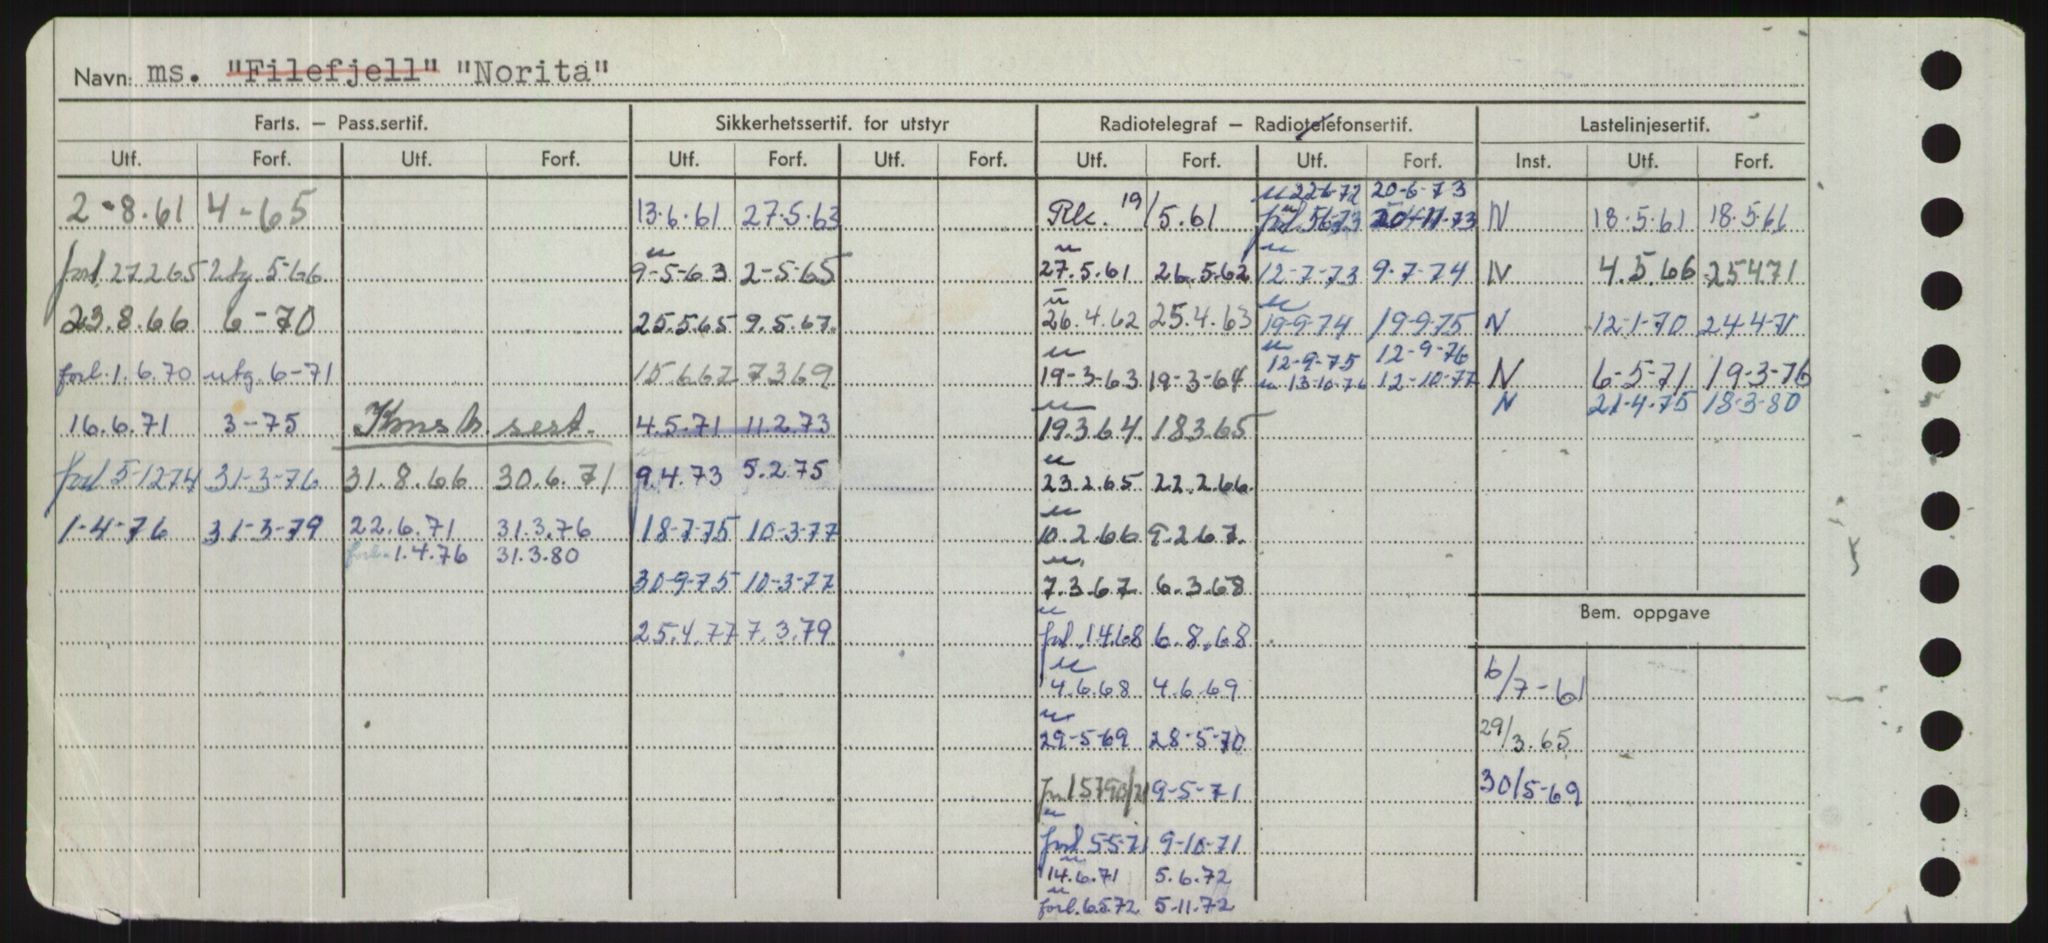 Navn: ms. "Filefjell" "Norita"
Farts. — Pass.sertif. Sikkerhetssertif. for utstyr Radiotelegraf — Radiotelefonsertif. Lastelinjesertif.
Utf. Forf. Utf. Forf. Utf. Forf. Utf. Forf. Utf. Forf. Utf. Forf. Inst. Utf. Forf.
u 22-6-72 20-6-73
2-8.61 4-65 13.6.61 27.5.63 Rk. 19/5.61 N 18.5.61 18.5.66
u u u
forl 27265 utg. 5-66 9-5-63 2-5-65 27.5.61 26.5.62 12-7-73 9-7-74 N 4.5.66 25471
u u
23.8.66 6-70 25.5.65 9.5.67. 26.4.62 25.4.63 19-9-74 19-9-75 N 12-1-70 24-4-71
u u 12-9-75 12-9-76
forl. 1.6.70 utg. 6-71 15.667 7369 19-3-63 19-3-64 u 13-10-76 12-10-77 N 6-5-71 19-3-76
u N 21-4.75 18-3-80
16.6.71 3-75 Konstr. sert. 4.5.71 11.2.73 19.3.64. 18.3.65
u
forl 5-1274 31-3-76 31.8.66 30.6.71 9.4.73 5.2.75 23.2.65 22.2.66.
u
1-4-76 31-3-79 22.6.71 31.3.76 18-7-75 10-3-77 10.2.66 9.2.67.
forl. 1.4.76 31.3.80 u
30-9-75 10-3-77 7.3.67 6.3.68
u Bem. oppgave
25.4.77 7.3.79 forl. 1.4.68 6.8.68
u
4.6.68 4.6.69 6/7-61
u
29-5-69 28-5-70 29/3.65
9-5-71 30/5-69
u
forl. 5-5-71 9-10-71
u
14.6.71 5.6.72
u
forl. 6.5.72 5-11.72